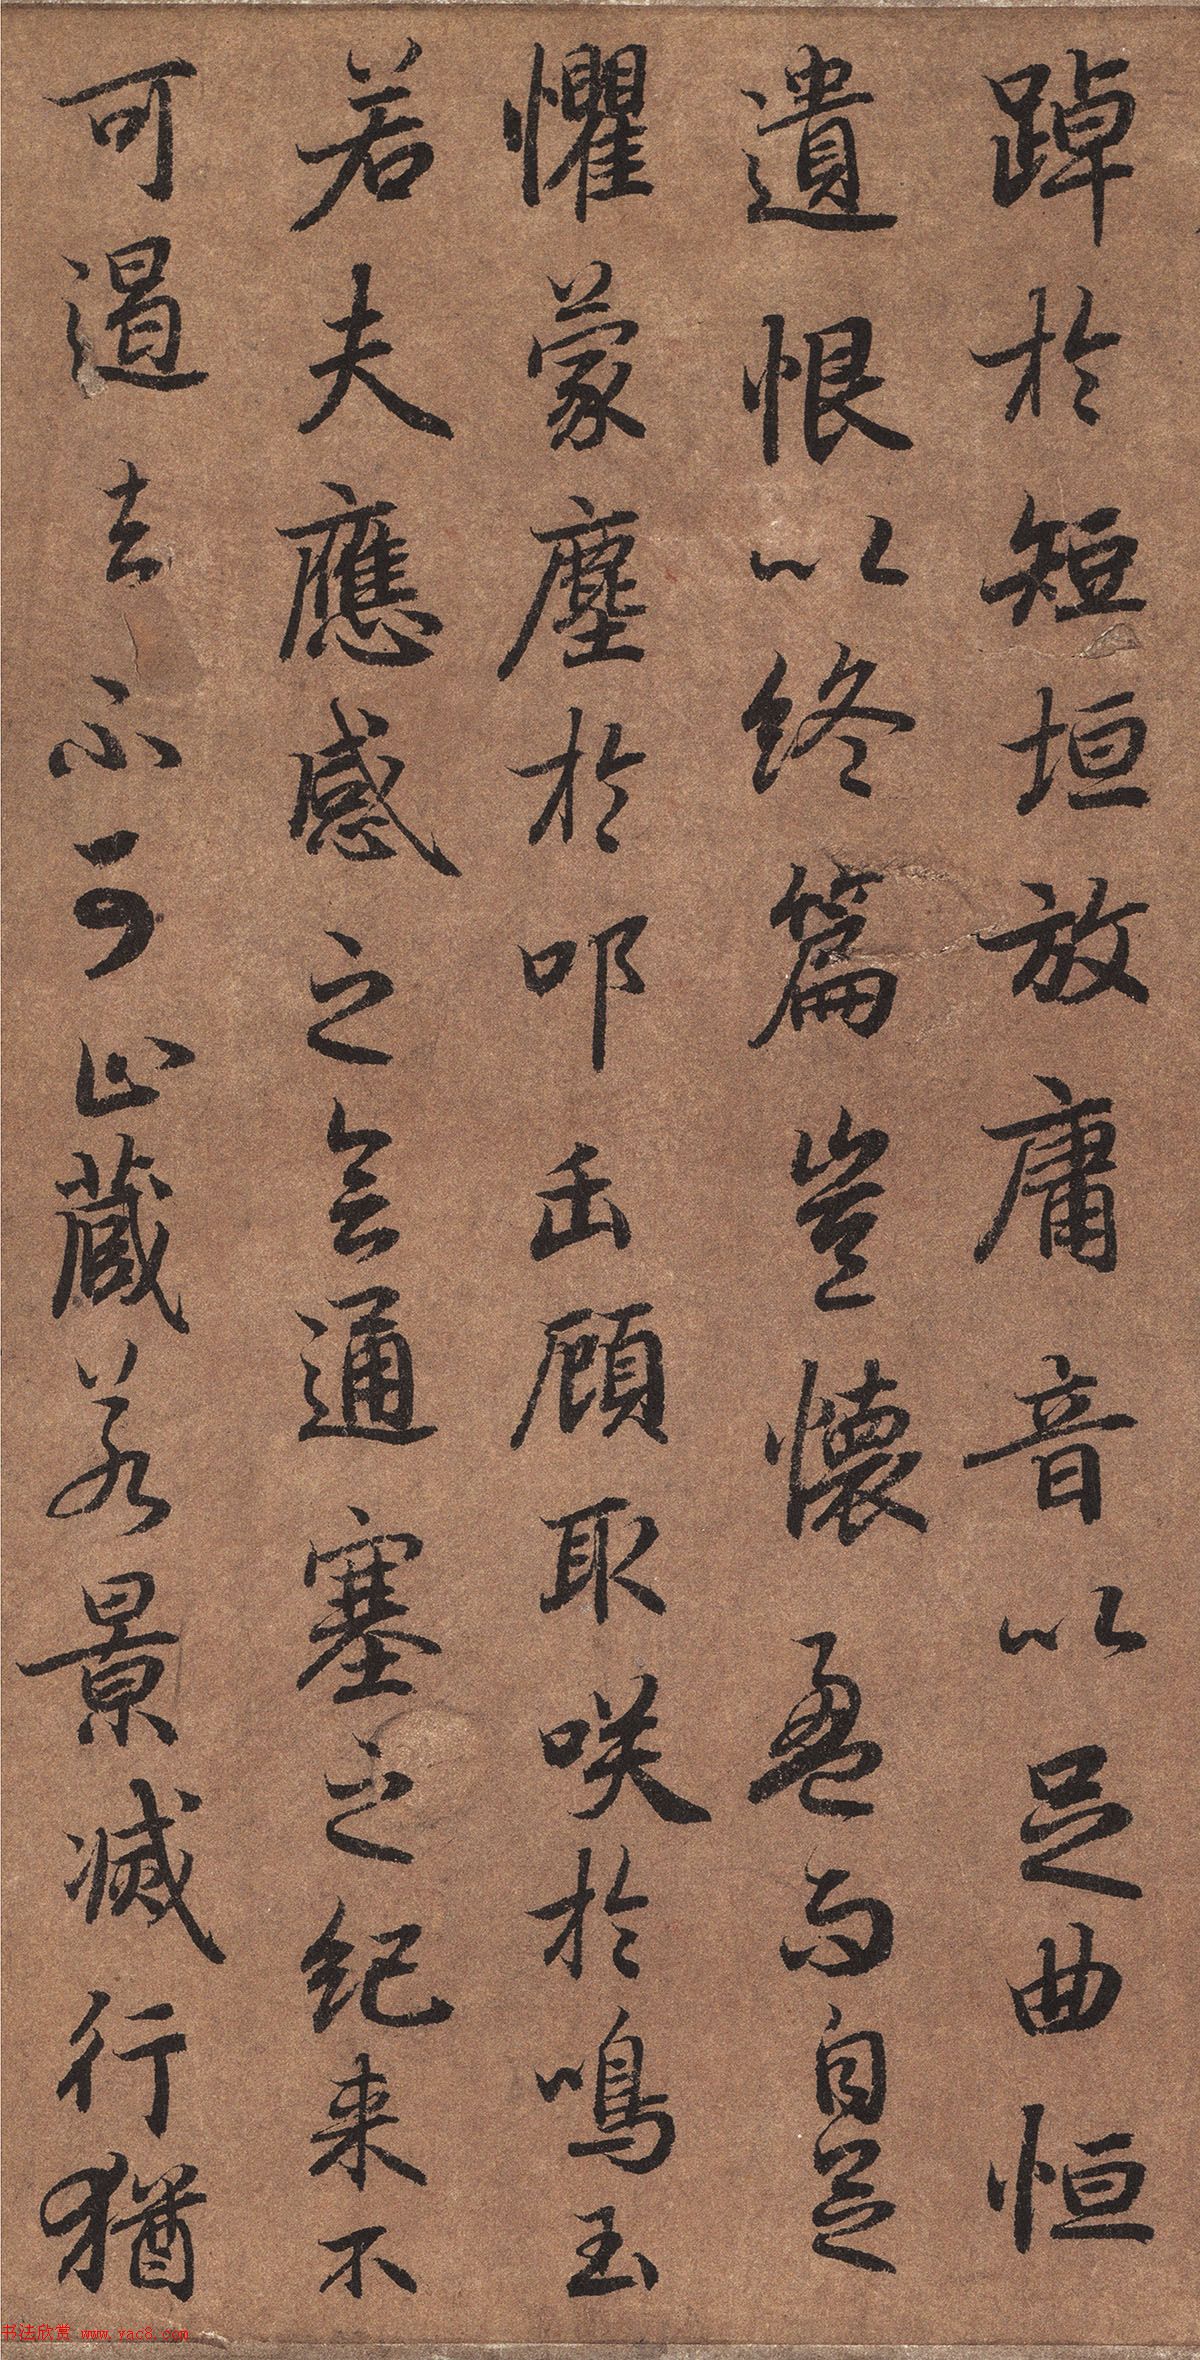 踔於短垣放庸音以足曲恒
遺恨以終篇豈懷盈而自足
懼蒙塵於叩缶顧取咲於鳴玉
若夫應感之會通塞之紀来不
可遏去不可止藏若景滅行猶
书法欣赏 www.yac8.com